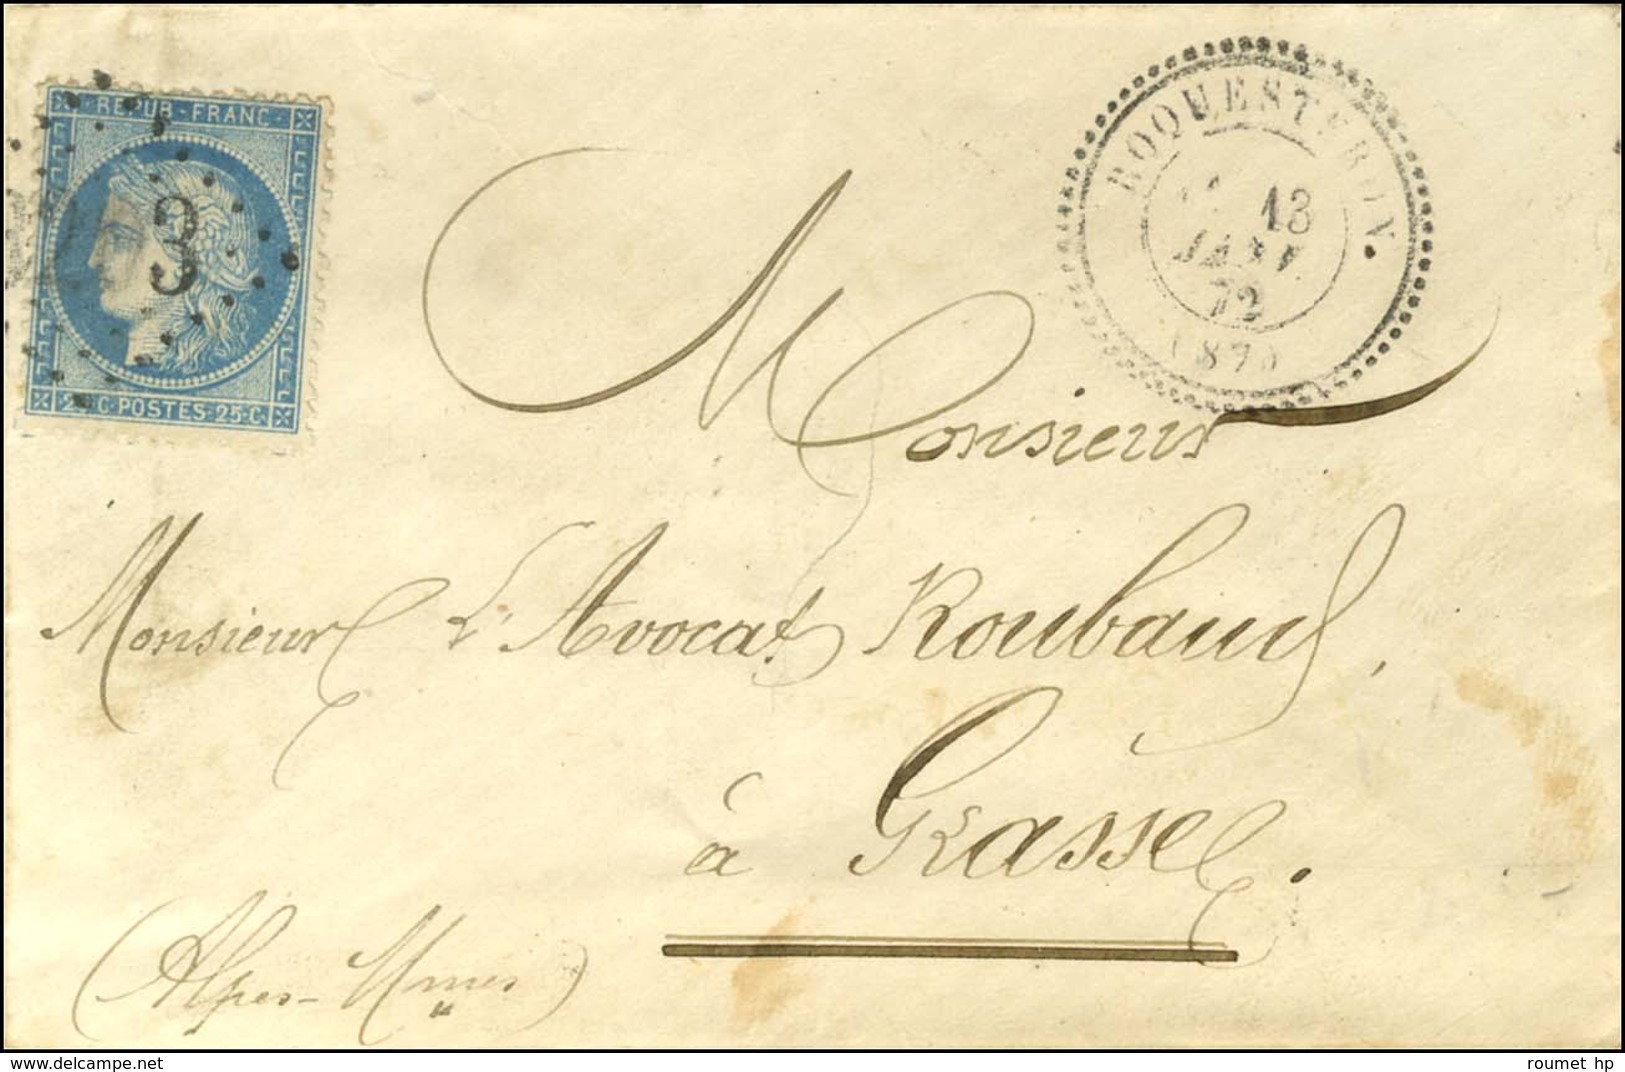 REPUB-FRANC-
3
C·POSTES-25·C·
ROQUESTERON.
13
JANV
72
(87)
Monsieur
Monsieur L'Avocat Roubaud,
à Grasse.
(Alpes-Mmes)
delcampe.net
roumet hp